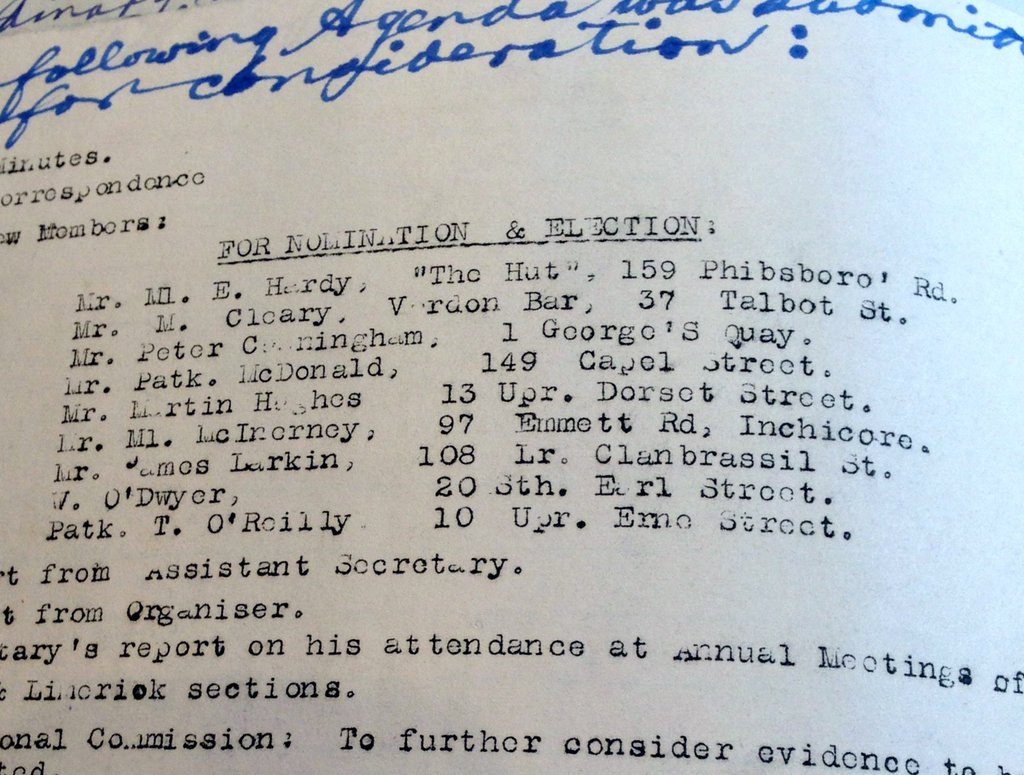 following Agenda was
for consideration:
Minutes.
orrespondence
ew Members:
FOR NOMINATION & ELECTION:
Mr. Ml. E. Hardy, "The Hut", 159 Phibsboro' Rd.
Mr. M. Cleary, Verdon Bar, 37 Talbot St.
Mr. Peter Cunningham, 1 George'S Quay.
Mr. Patk. McDonald, 149 Capel Street.
Mr. Martin Hughes 13 Upr. Dorset Street.
Mr. Ml. McInerney, 97 Emmett Rd, Inchicore.
Mr. James Larkin, 108 Lr. Clanbrassil St.
W. O'Dwyer, 20 Sth. Earl Street.
Patk. T. O'Reilly 10 Upr. Erne Street.
rt from Assistant Secretary.
t from Organiser.
tary's report on his attendance at Annual Meetings of
& Limerick sections.
onal Commission: To further consider evidence to b
ted.